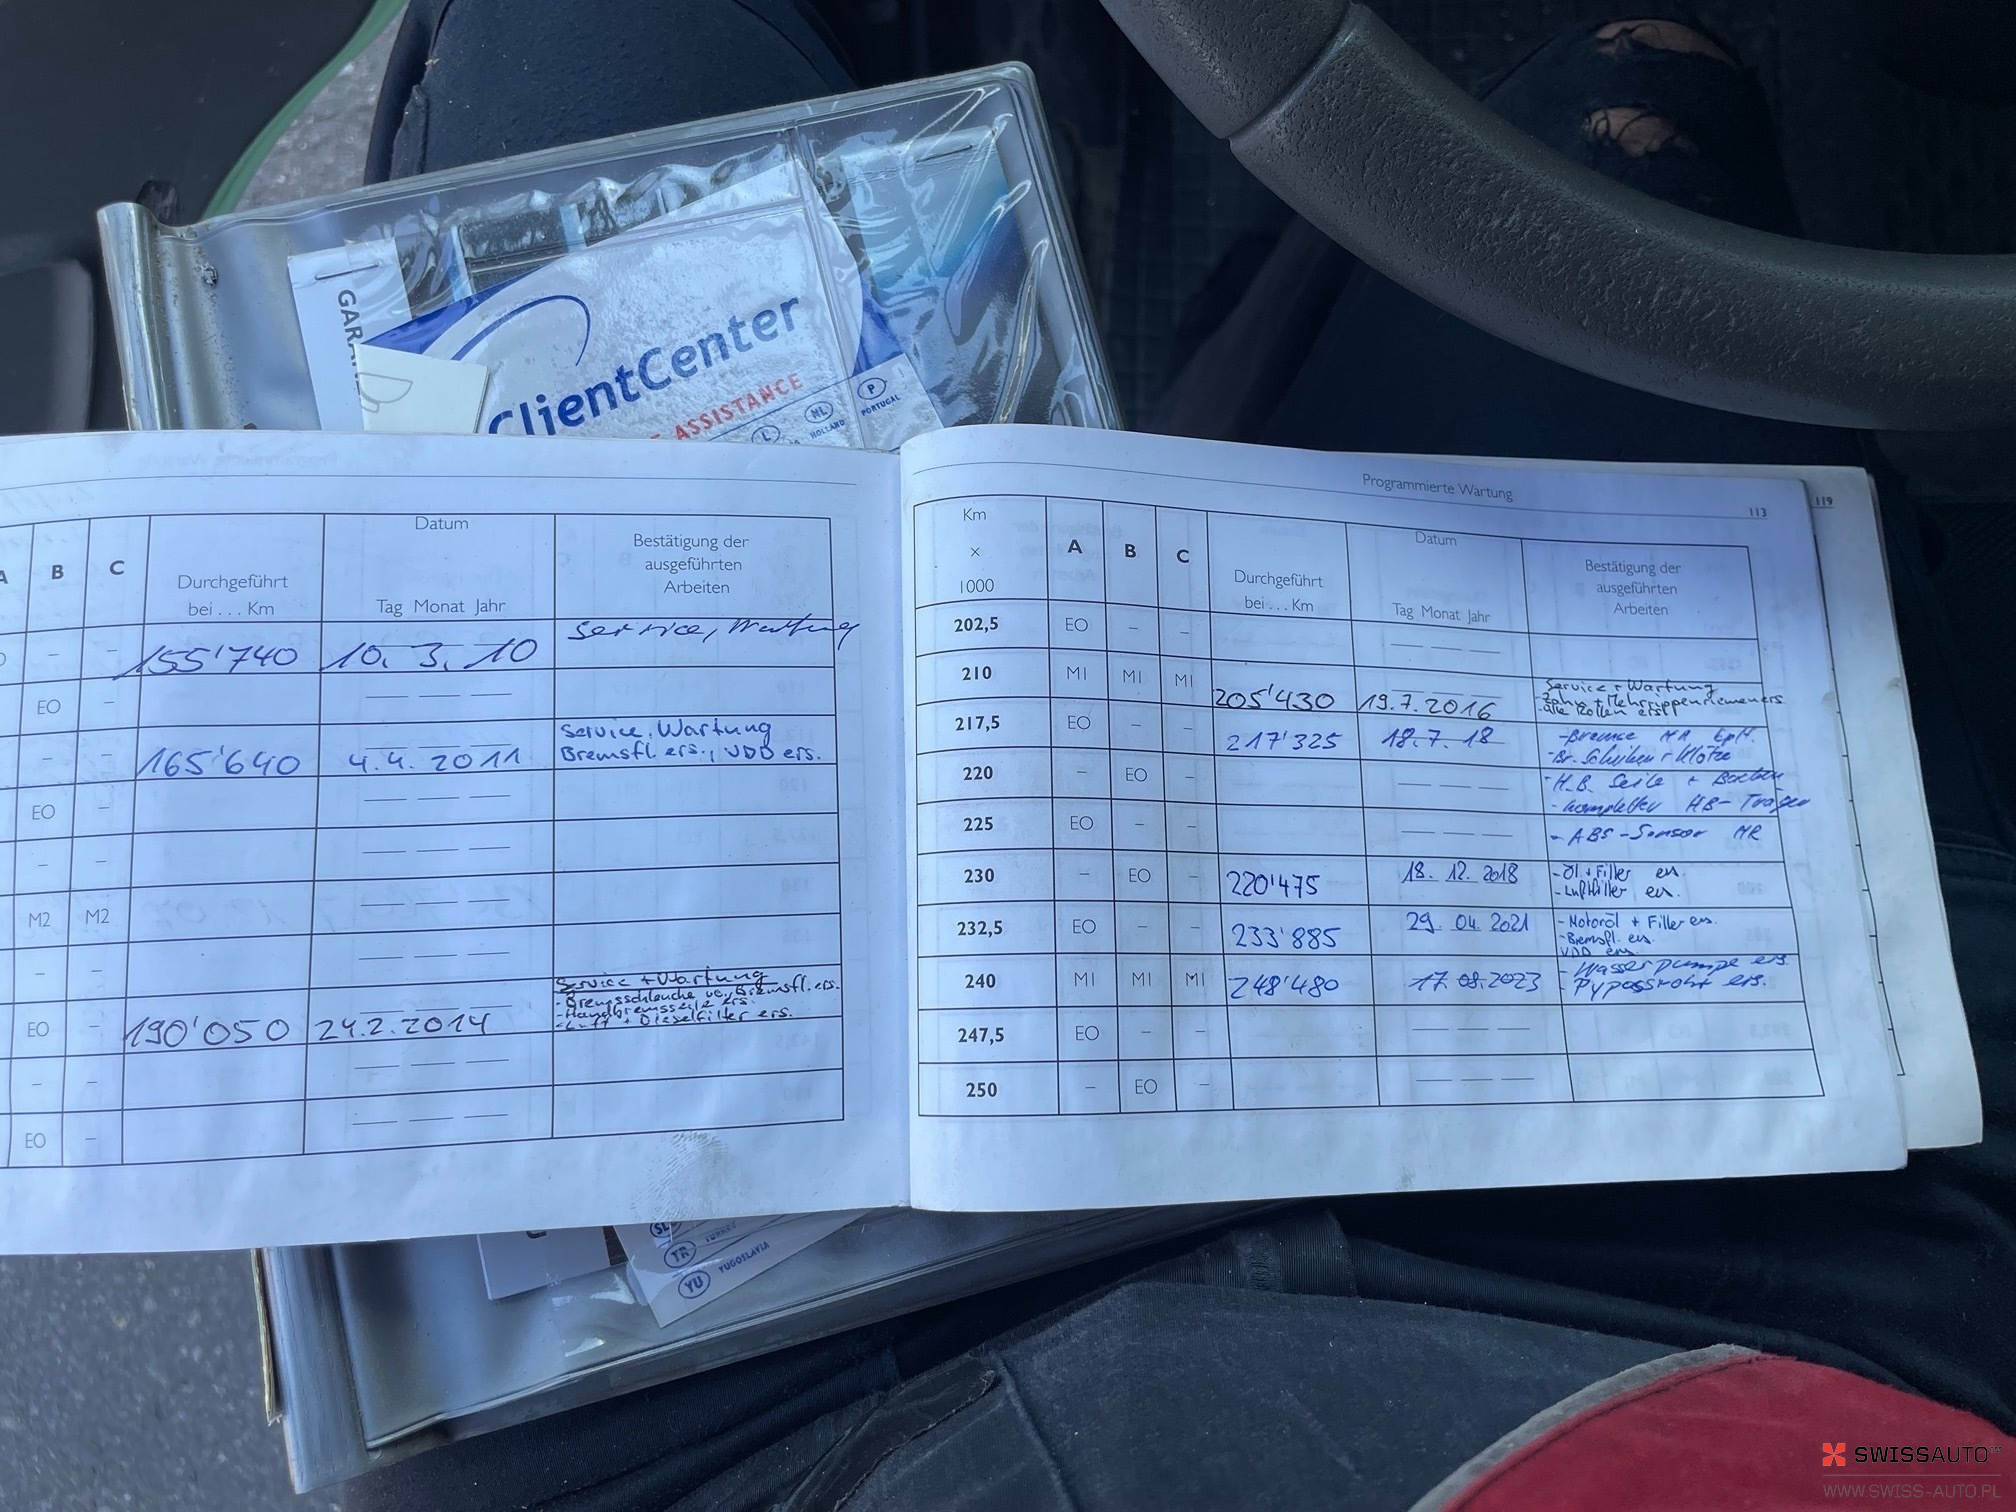 GARA
ClientCenter
ASSISTANCE
L
NL
HOLLAND
P
PORTUGAL
A B C
Durchgeführt
bei . . . Km
Datum
Tag Monat Jahr
Bestätigung der
ausgeführten
Arbeiten
– – 155'740 10. 3. 10 Service, Wartung
EO –
– – 165'640 4.4. 2011 Service, Wartung
Bremsfl. ers., VDD ers.
EO –
– –
M2 M2
– –
EO – 190'050 24.2.2014 Service + Wartung
- Bremsschläuche Bremsfl. ers.
- Handbremsseile ers.
- Luft + Dieselfilter ers.
– –
EO –
Programmierte Wartung
113
119
Km
×
1000
A B C
Durchgeführt
bei . . . Km
Datum
Tag Monat Jahr
Bestätigung der
ausgeführten
Arbeiten
202,5 EO – –
210 MI MI MI 205'430 19.7.2016 Service + Wartung
- Zahn + Mehrrippenriemen ers.
- alle Rollen
217,5 EO – – 217'325 18.7.18 - Bremse
- Br. Scheiben + Klötze
220 – EO – - H.B. Seile + Backen
- kompletter HB-Träger
225 EO – – - ABS-Sensor
230 – EO – 220'475 18. 12. 2018 - Öl + Filter ers.
- Luftfilter ers.
232,5 EO – – 233'885 29. 04. 2021 - Motoröl + Filter ers.
- Bremsfl. ers.
VDD ers.
240 MI MI MI 248'480 17.08.2023 - Wasserpumpe ers.
- Pypassrohr ers.
247,5 EO – –
250 – EO –
SL
TR
TURKEY
YU
YUGOSLAVIA
SWISSAUTO
WWW.SWISS-AUTO.PL